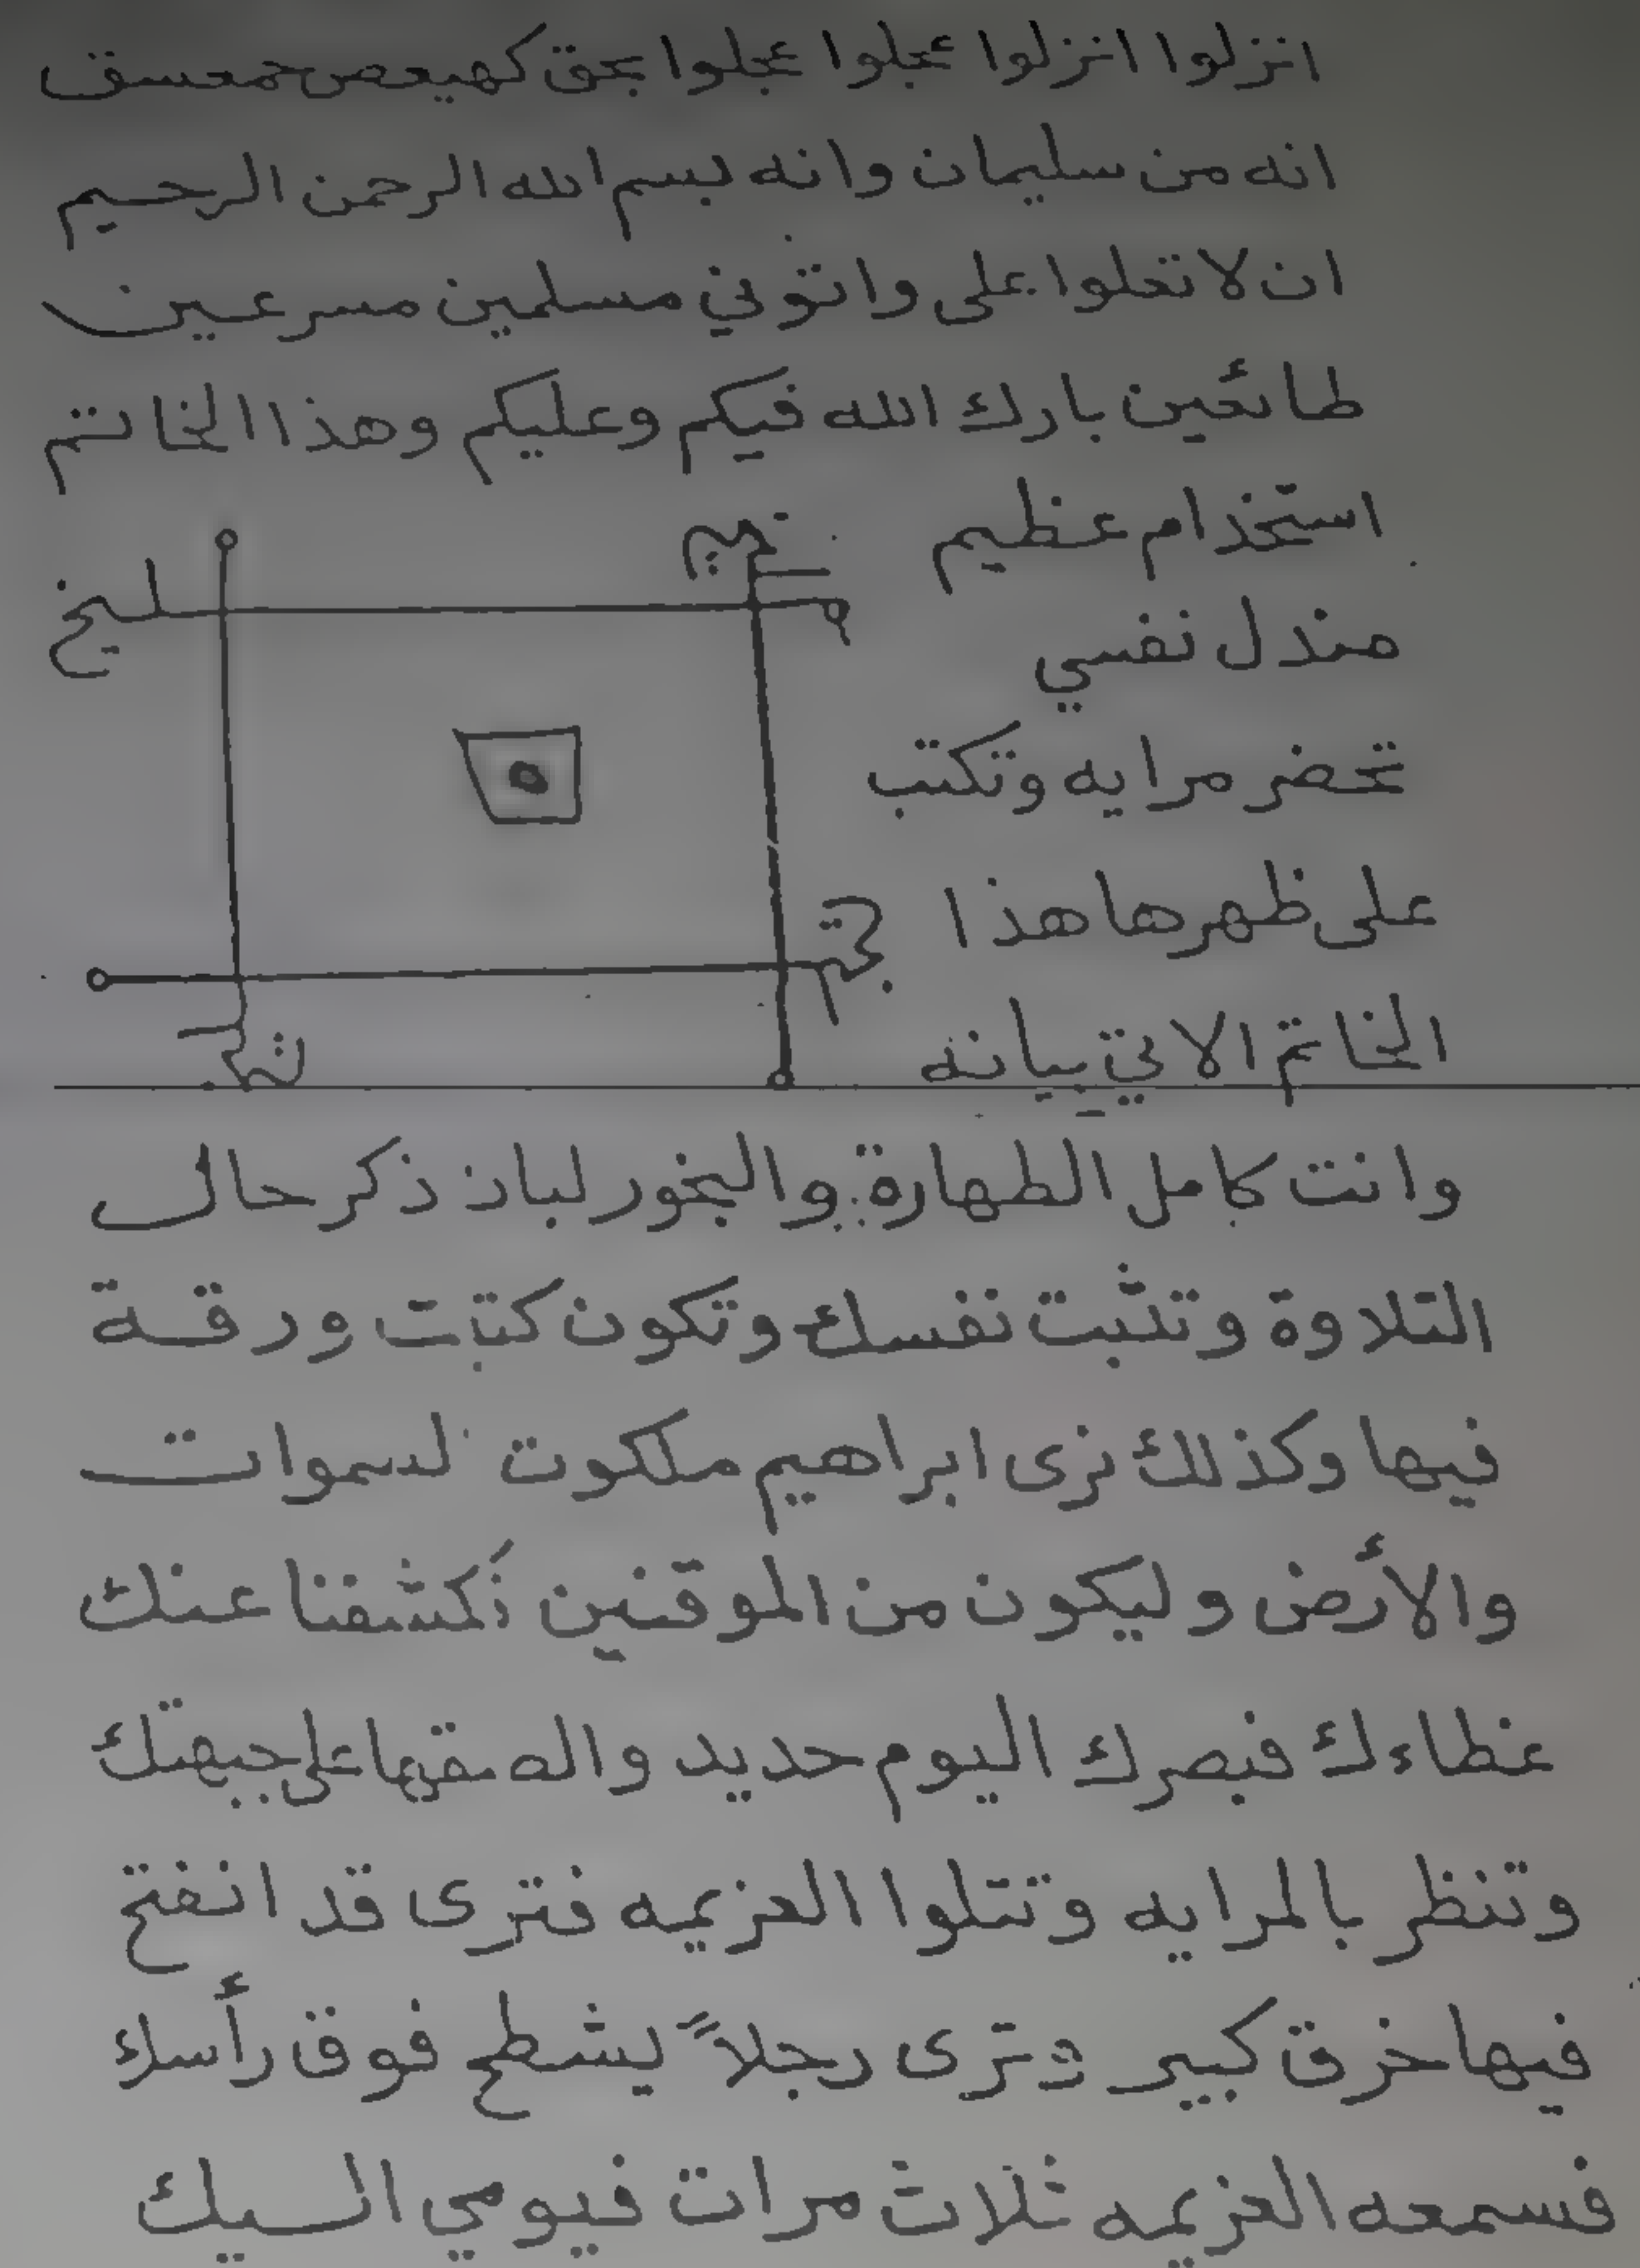 انزلوا انزلوا عجلوا عجلوا بحق كهيعص حمعسق
انه من سليمان وانه بسم الله الرحمن الرحيم
ان لا تعلوا على واتوني مسلمين مسرعين
طائعين بارك الله فيكم وعليكم وهذا الخاتم
استخذام عظيم
مندل نفسي
تحضر مرايه وتكتب
على ظهرها هذا
الخاتم الاتي بيانه
وانت كامل الطهارة والبخور لبان ذكر حال
التلاوة وتثبت نفسك وتكون كتبت ورقة
فيها وكذلك نرى ابراهيم ملكوت لسموات
والأرض وليكون من الموقنين فكشفنا عنك
غطاءك فبصرك اليوم حديد والصقها على جبهتك
وتنظر بالمرايه وتتلوا العزيمه فترى قد انفتح
فيها خرق كبير وترى رجلاً يشطح فوق رأسك
فسمعه العزيمه ثلاث مرات فيومي اليك